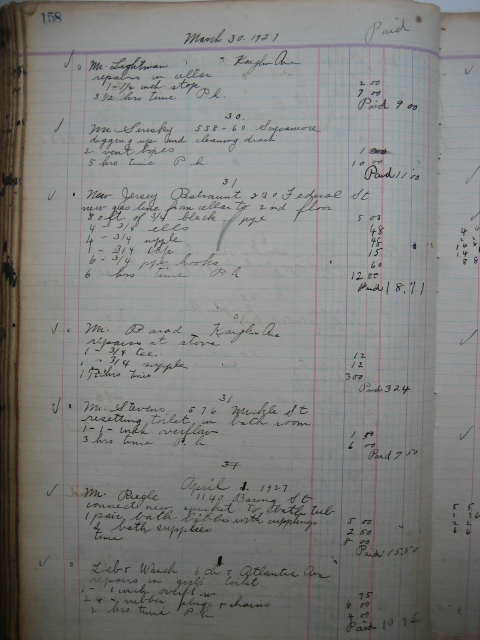 158
March 30. 1927
Paid
Mr. Lightman " " Kaighn Ave
repairs in cellar
1 - 1/2 inch stop 2 00
3 1/2 hrs time P. h. 7 00
Paid 9 00
30
Mr. 558-60 Sycamore
digging up and cleaning drain
2 vent caps 1
5 hrs time P h 10 00
Paid 11.00
31
New Jersey Restraunt 230 Federal St
new gas line from cellar to 2nd floor
80 ft. of 3/4 black pipe 5 00
4 - 3/4 ells 48
4 - 3/4 nipple 48
1 - 3/4 15
6 - 3/4 pipe hooks 60
6 hrs time P h 12 00
Paid 18.71
31
Mr. Kaighn Ave
repairs at stove
1 - 3/4 tee 12
1 - 3/4 nipple 12
1 1/2 hrs time 3 00
Paid 3 24
31
Mr. Stevens 576 Mickle St
resetting toilet in bath room
1 - 1 - inch overflow 1.50
3 hrs time P. h 6 00
Paid 7 50
31
April 1. 1927
Mr. Riegle 1149 Baring St
connect new to bath tub
1 pair bath bibbs with cupplings 5 00
2 bath supplies 2 50
time 8 00
Paid 15.50
Leb & 6th & Atlantic Ave
repairs in girls toilet
1 - 1 inch overflow 75
2 rubber plugs & chains 6 00
2 hrs time P h 4 00
Paid 10